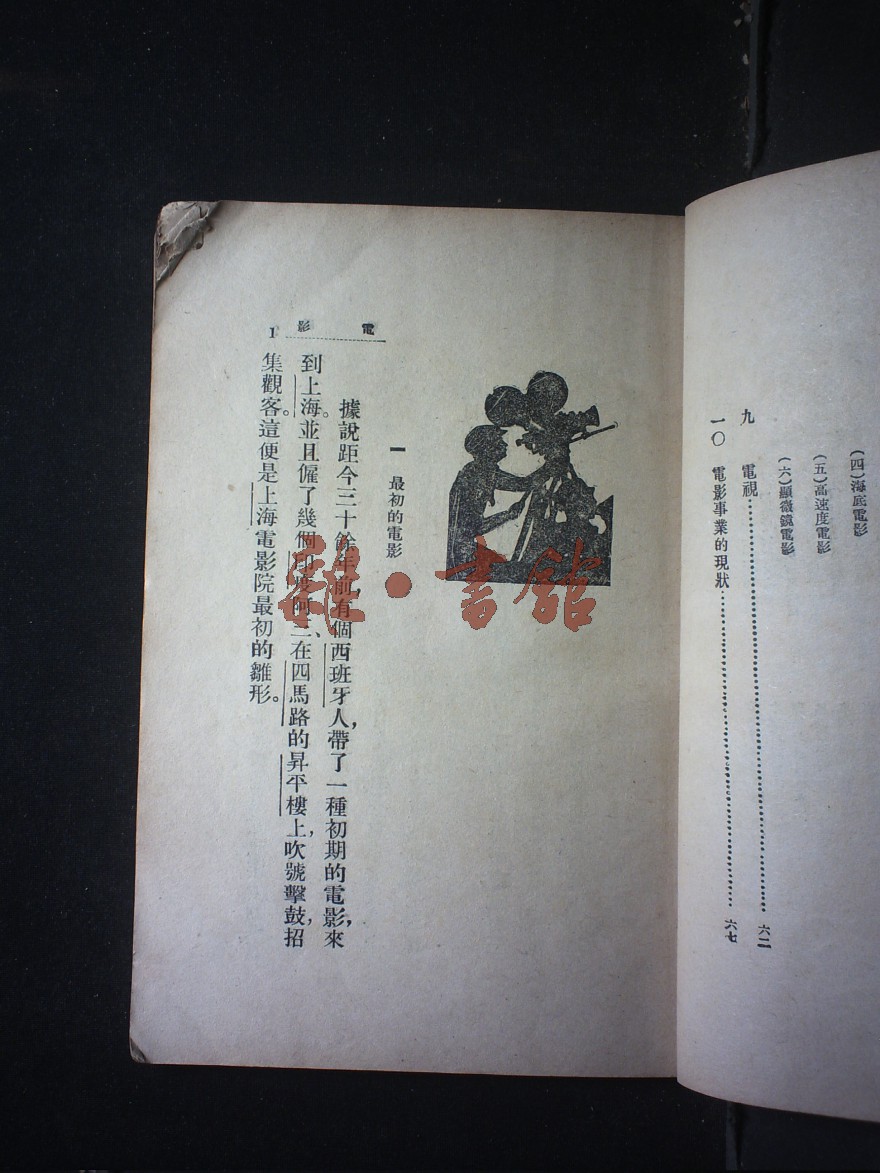 (四)海底電影
(五)高速度電影
(六)顯微鏡電影
九 電視……六二
一〇 電影事業的現狀……六七
一 最初的電影
據說距今三十餘年前,有個西班牙人,帶了一種初期的電影,來
到上海。並且僱了幾個印度阿三、在四馬路的昇平樓上,吹號擊鼓,招
集觀客。這便是上海電影院最初的雛形。
電影 1
雜·書館